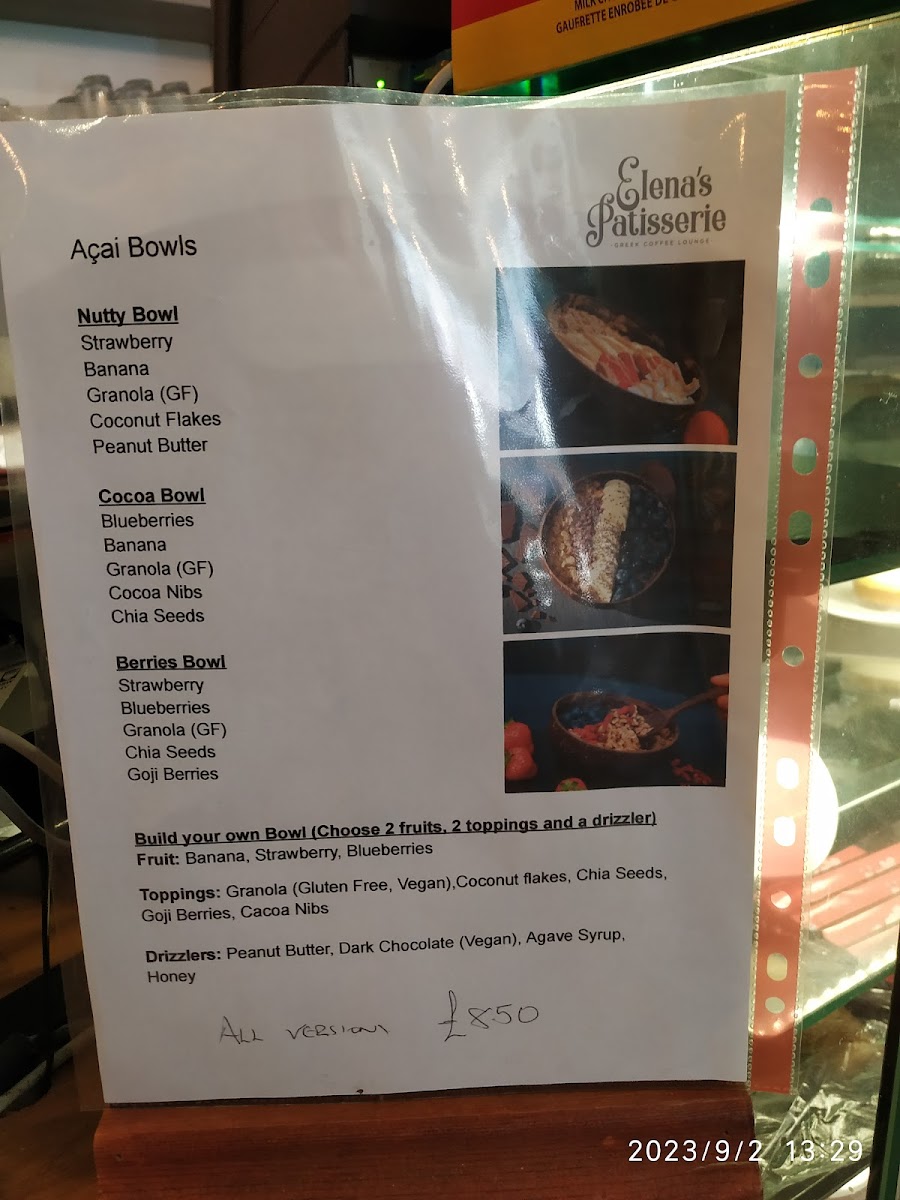 MILK
GAUFRETTE ENROBÉE DE
Elena's
Patisserie
GREEK COFFEE LOUNGE
Açai Bowls
Nutty Bowl
Strawberry
Banana
Granola (GF)
Coconut Flakes
Peanut Butter
Cocoa Bowl
Blueberries
Banana
Granola (GF)
Cocoa Nibs
Chia Seeds
Berries Bowl
Strawberry
Blueberries
Granola (GF)
Chia Seeds
Goji Berries
Build your own Bowl (Choose 2 fruits, 2 toppings and a drizzler)
Fruit: Banana, Strawberry, Blueberries
Toppings: Granola (Gluten Free, Vegan),Coconut flakes, Chia Seeds,
Goji Berries, Cacoa Nibs
Drizzlers: Peanut Butter, Dark Chocolate (Vegan), Agave Syrup,
Honey
ALL VERSIONS £850
2023/9/2 13:29